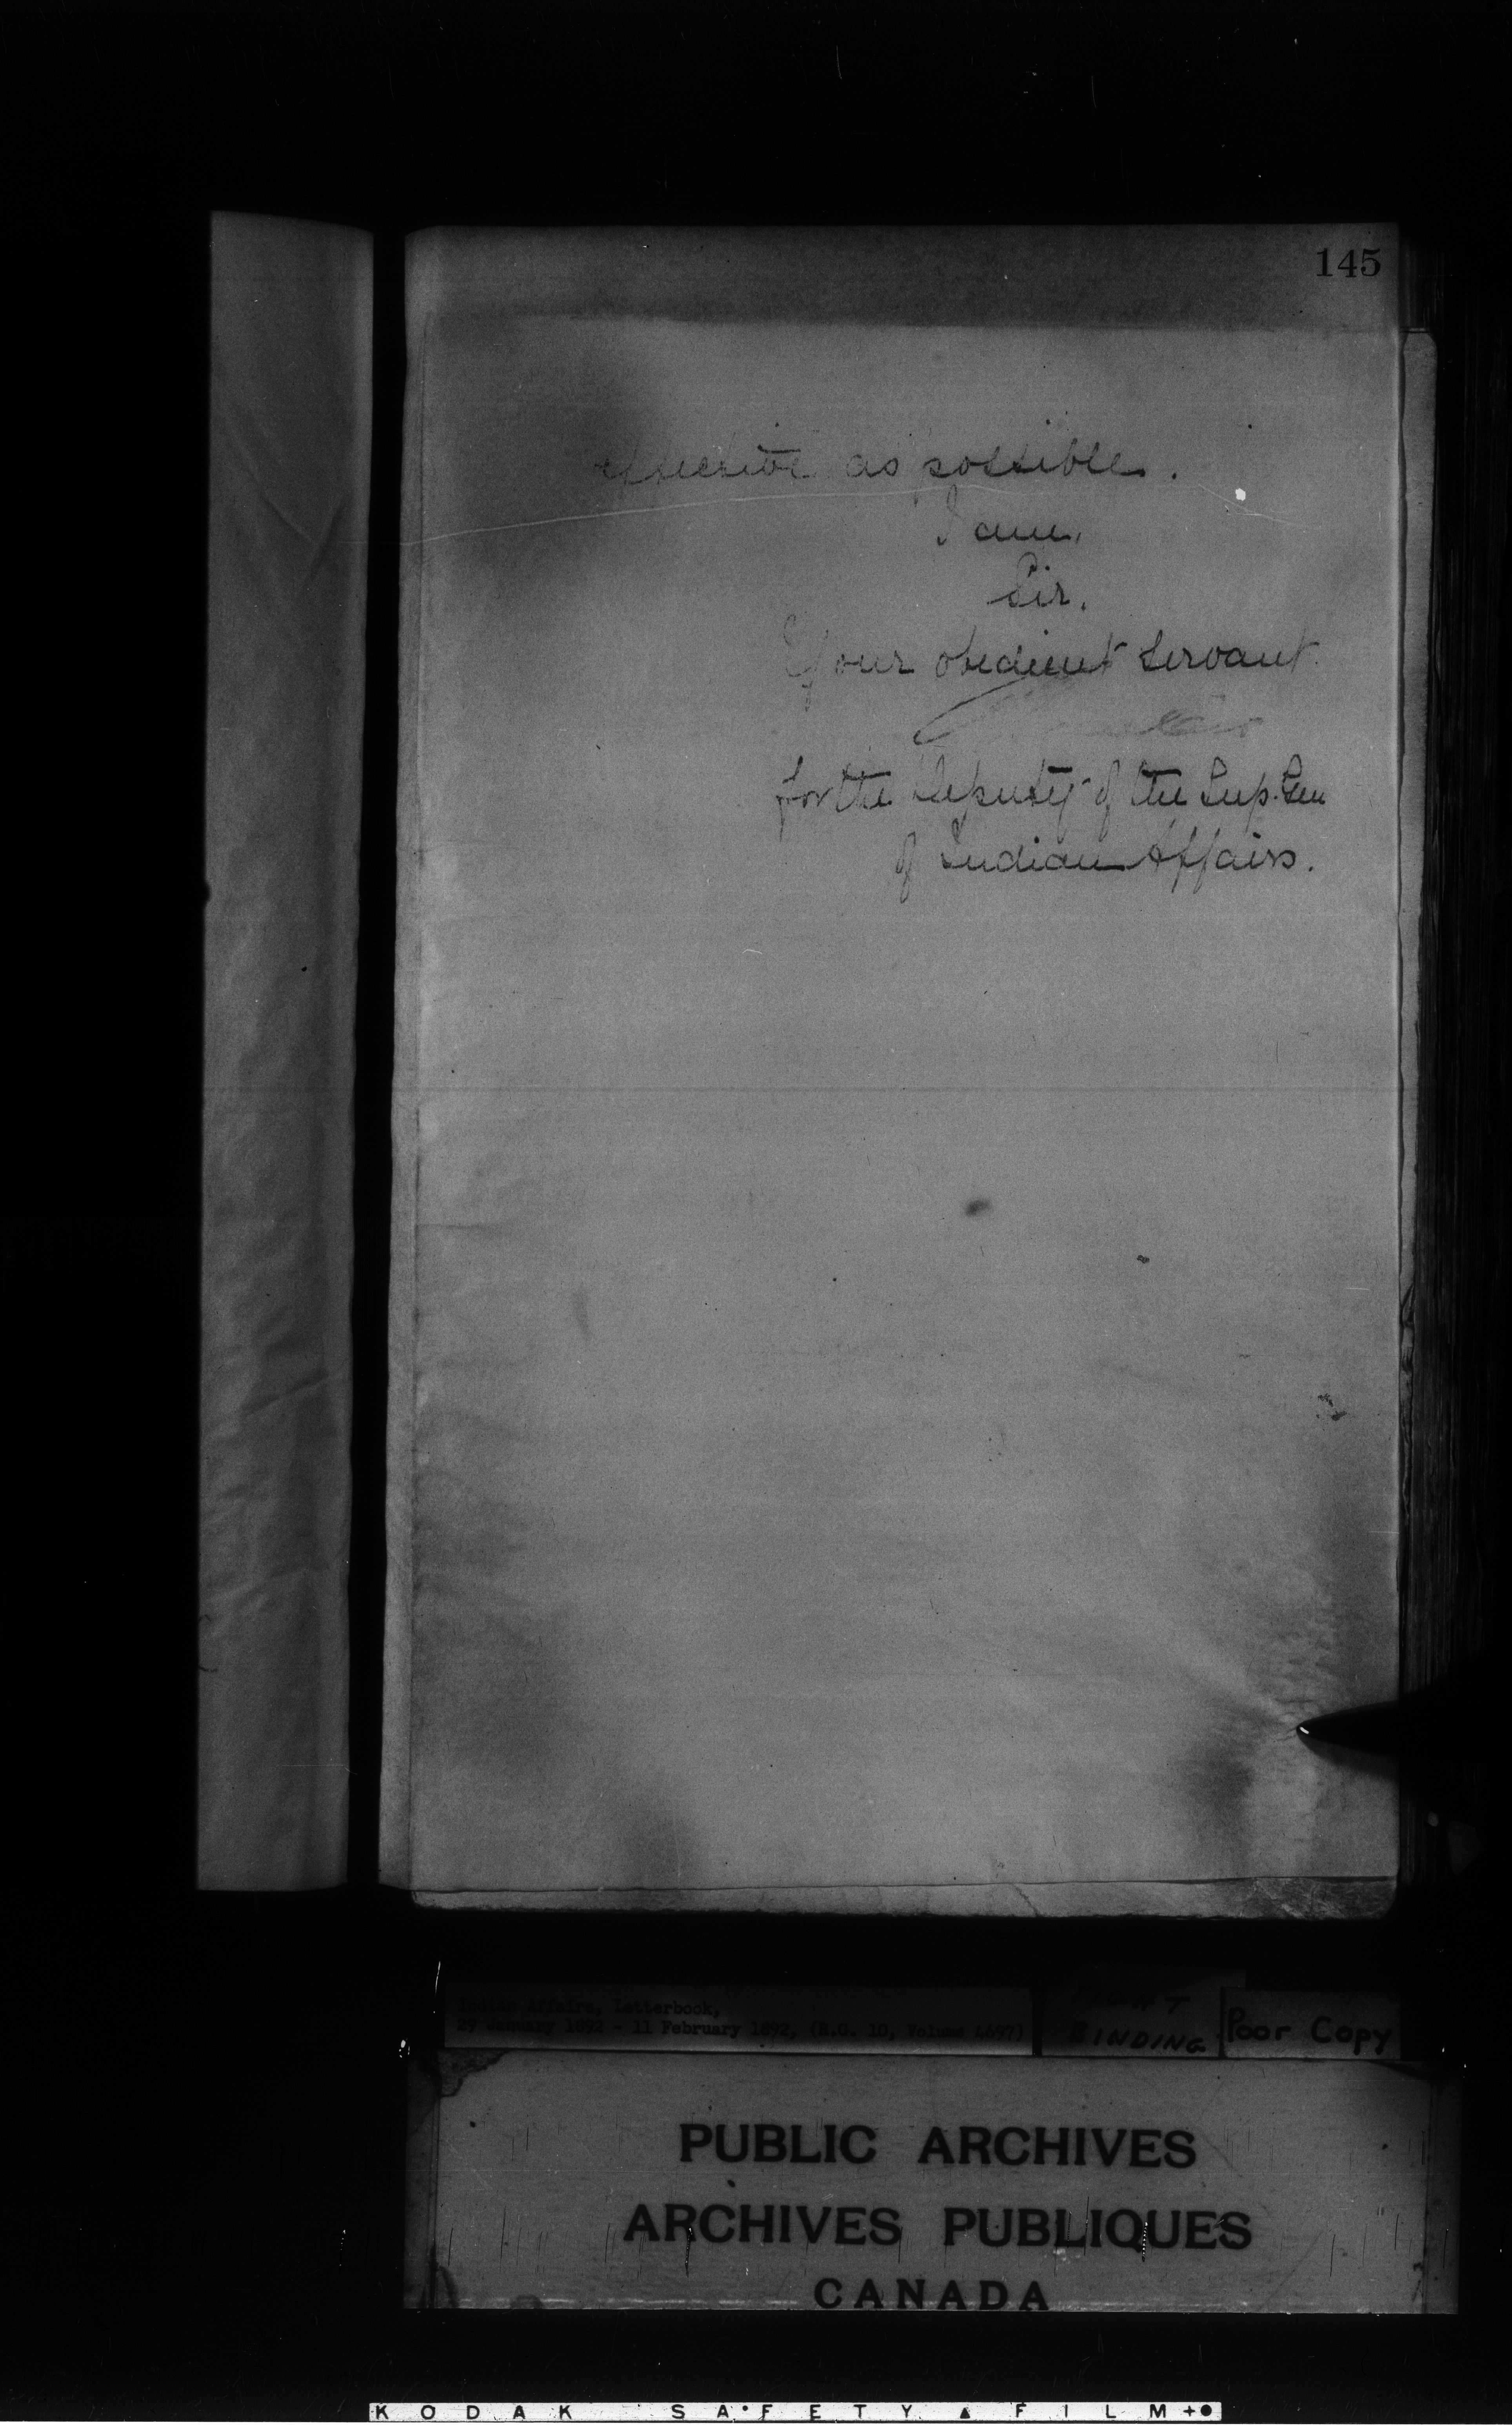 145
effective as possible.
I am,
Sir,
Your obedient servant
for the Deputy of the Sup. Gen
of Indian Affairs.
Indian Affairs, Letterbook,
29 January 1892 - 11 February 1892, (R.G. 10, Volume 4697)
TIGHT
BINDING
Poor Copy
PUBLIC ARCHIVES
ARCHIVES PUBLIQUES
CANADA
KODAK SAFETY FILM